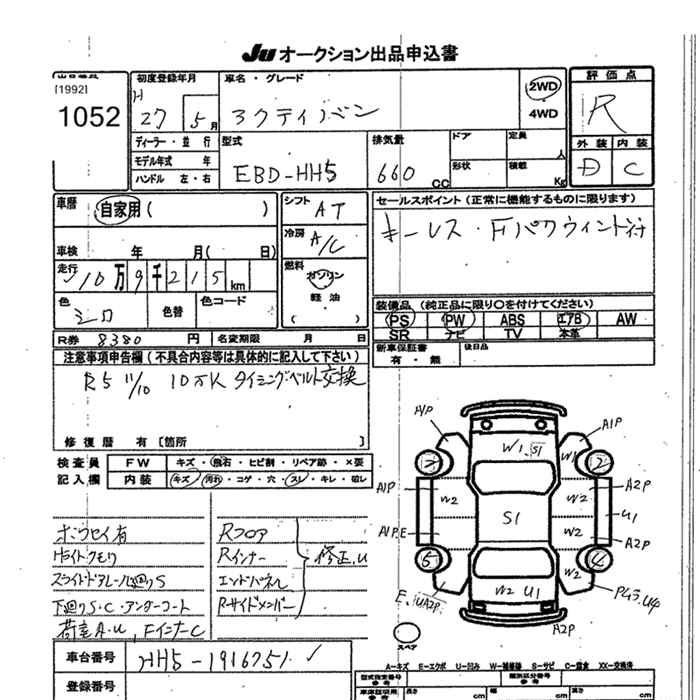 Ju オークション出品申込書
[1992]
1052
初度登録年月
H 27 5月
車名・グレード
アクティバン
2WD
4WD
評価点
R
外装 内装
D C
ディーラー・並行
モデル年式 年
ハンドル 左・右
型式
EBD-HH5
排気量
660 CC
ドア
形状
定員 人
積載 Kg
車歴
自家用( )
車検 年 月( 日)
走行
10万9千215km
色
シロ
色替
色コード
シフト
AT
冷房
A/C
燃料
ガソリン
軽油
セールスポイント(正常に機能するものに限ります)
キーレス・Fパワウィンド
装備品(純正品に限り○を付けてください)
PS PW ABS エアB AW
SR ナビ TV 本革
新車保証書
有・無
後日品
R券 8380円 名変期限 月 日
注意事項申告欄(不具合内容等は具体的に記入して下さい)
R5 11/10 10万K タイミングベルト交換
修復歴 有[箇所 ]
検査員
記入欄
FW キズ・飛石・ヒビ割・リペア跡・×要
内装 キズ・汚れ・コゲ・穴・スレ・キレ・破レ
ボウセイ有
Hライトクモリ
スライドドアレール廻りS
下廻りS・C・アンダーコート
荷室A・U、FインナーC
Rフロア
Rインナー
エンドパネル
Rサイドメンバー
修正、U
A1P
A1P
W1 S1
W1
2
2
A1P
W2
W2
A2P
S1
U1
A1P,E
W2
A2P
5
4
W2
E、UA2P
W2 U1
A2P
スペア
車台番号
HH5-1916751
登録番号
A-キズ E-エクボ U-凹み W-補修跡 S-サビ C-腐食 XX-交換済
型式指定番号
参考
類別区分番号
参考
長さ cm
幅 cm
高さ cm